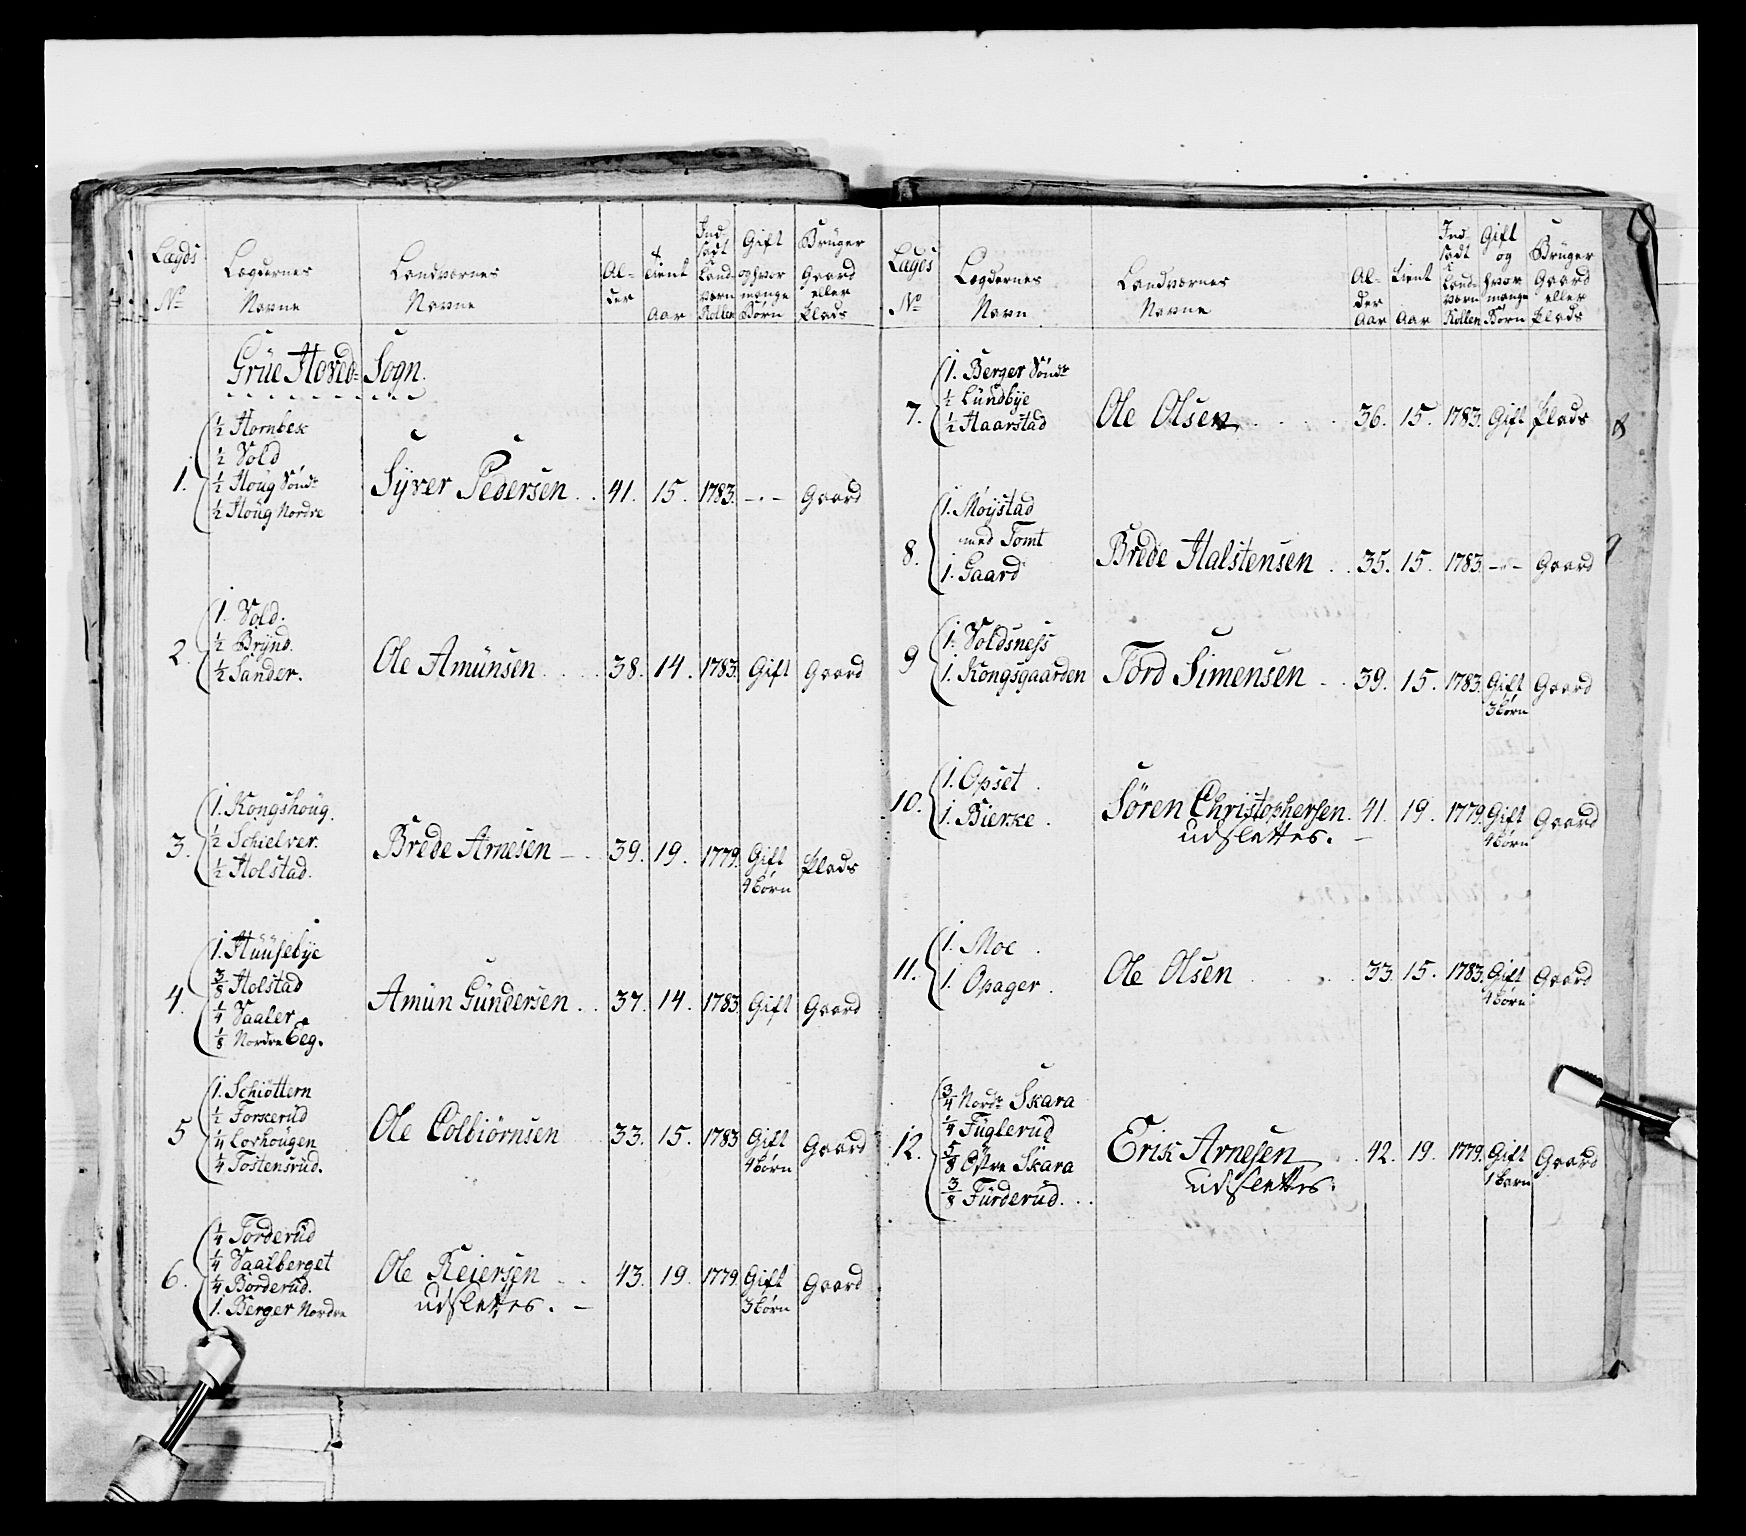 Lægds No | Lægdernes Navne | Landværnes Navne | Al- der | tient Aar | Ind- sadt i Land- værn Rollen | Gift og hvor mange Børn | Brüger Gaard eller Plads
Grüe Hoved- Sogn.
1. | ½ Hornbek | Syver Pedersen | 41. | 15. | 1783. | -.- | Gaard
½ Vold
½ Houg Sønd:
½ Houg Nordre
2. | 1. Vold. | Ole Amünsen | 38. | 14. | 1783. | Gift | Gaard
½ Brÿnd.
½ Sander.
3. | 1. Kongshoug. | Brede Arnesen | 39. | 19. | 1779. | Gift 4 børn | Plads
½ Schielver.
½ Holstad.
4. | 1. Huusebye | Amün Gündersen | 37. | 14. | 1783. | Gift | Gaard
3/8 Holstad
¼ Vaaler
1/8 Nordre Eeg.
5 | 1. Schiøttern | Ole Colbiørnsen | 33. | 15. | 1783 | Gift 4 børn | Gaard
½ Forkerud
¼ Lorhougen
¼ Tostensrud.
6. | ¼ Torderud | Ole Reiersen | 43. | 19. | 1779. | Gift 3 børn | Gaard
¼ Vaalberget | udslettes. -
¼ Borderud.
1. Berger Nordre
Lægds No | Lægdernes Navn | Landværnes Navne | Al- der Aar | tient Aar | Ind- sadt i Land- værn Rollen | Gift og hvor mange Børn | Brüger Gaard eller Plads
7. | 1. Berger Sønd: | Ole Olsen | 36. | 15. | 1783. | Gift | Plads
½ Lundbye
½ Haarstad
8. | 1. Møystad | Brede Halstensen | 35. | 15. | 1783. | -.- | Gaard
med Tomt
1. Gaard
9 | 1. Voldsness | Tord Simensen | 39. | 15. | 1783. | Gift 3 børn | Gaard
1. Kongsgaarden
10. | 1. Opset | Søren Christophersen. | 41. | 19. | 1779. | Gift 4 børn | Gaard
1. Bierke. | udslettes. -
11. | 1. Moe | Ole Olsen | 33. | 15. | 1783. | Gift 4 børn | Gaard
1. Opager.
12. | ¾ Nord: Skara | Erik Arnesen | 42. | 19. | 1779. | Gift 1 barn | Gaard
¼ Füglerud | udslettes.
5/8 Østre Skara
3/8 Fürderud.